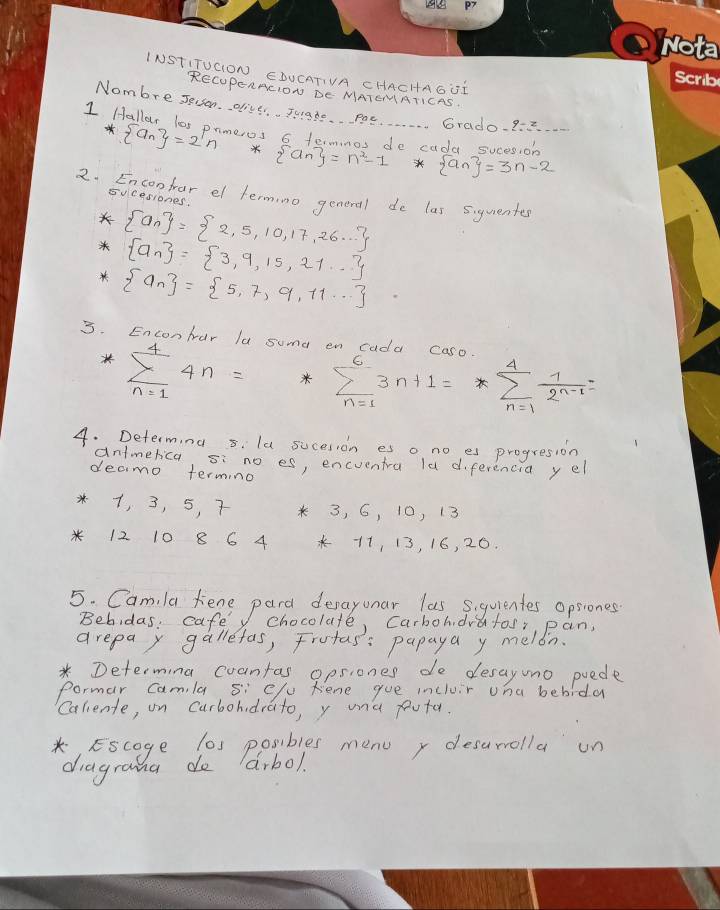 P7
Nota
Scrib
INSTITUCION EDUCATIVA CHACHAGÜÍ
RECUPERACION DE MATEMATICAS.
Nombre Jeison. oliver. Grado 9-2
1 Hallar los primeros 6 terminos de cada sucesion
* {an} = 2^n * {an} = n²-1 * {an} = 3n-2
2. Encontrar el termino general de las siguientes
sucesiones.
* {an} = {2, 5, 10, 17, 26...}
* {an} = {3, 9, 15, 21...}
* {an} = {5, 7, 9, 11...}
3. Encontrar la suma en cada caso.
* ∑_{n=1}^{4} 4n = * ∑_{n=1}^{6} 3n+1 = * ∑_{n=1}^{4} 1/2^{n-1} =
4. Determina si la sucesión es o no es progresión
aritmetica si no es, encuentra la diferencia y el
decimo termino
* 1, 3, 5, 7 * 3, 6, 10, 13
* 12 10 8 6 4 * 11, 13, 16, 20.
5. Camila tiene para desayunar las siguientes opsiones
Bebidas: café y chocolate, Carbohidratos: pan,
arepa y galletas, Frutas: papaya y melón.
* Determina cuantas opsiones de desayuno puede
formar Camila si c/u tiene que incluir una bebida
Caliente, un carbohidrato, y una fruta.
* Escoge los posibles menu y desarrolla un
diagrama de árbol.